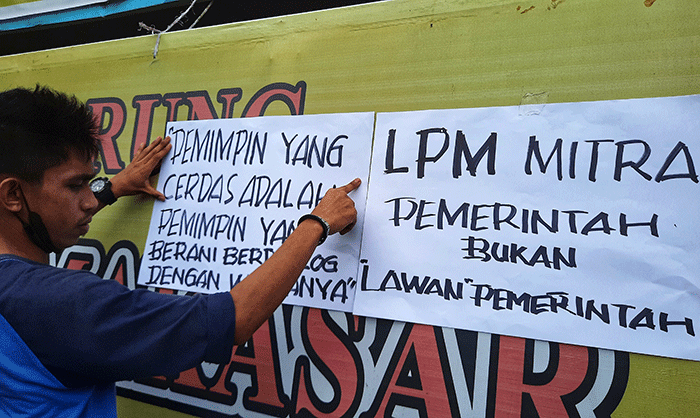 RUNG
"PEMIMPIN YANG
CERDAS ADALAH
PEMIMPIN YANG
BERANI
DENGAN
LPM MITRA
PEMERINTAH
BUKAN
"LAWAN" PEMERINTAH
ASAR